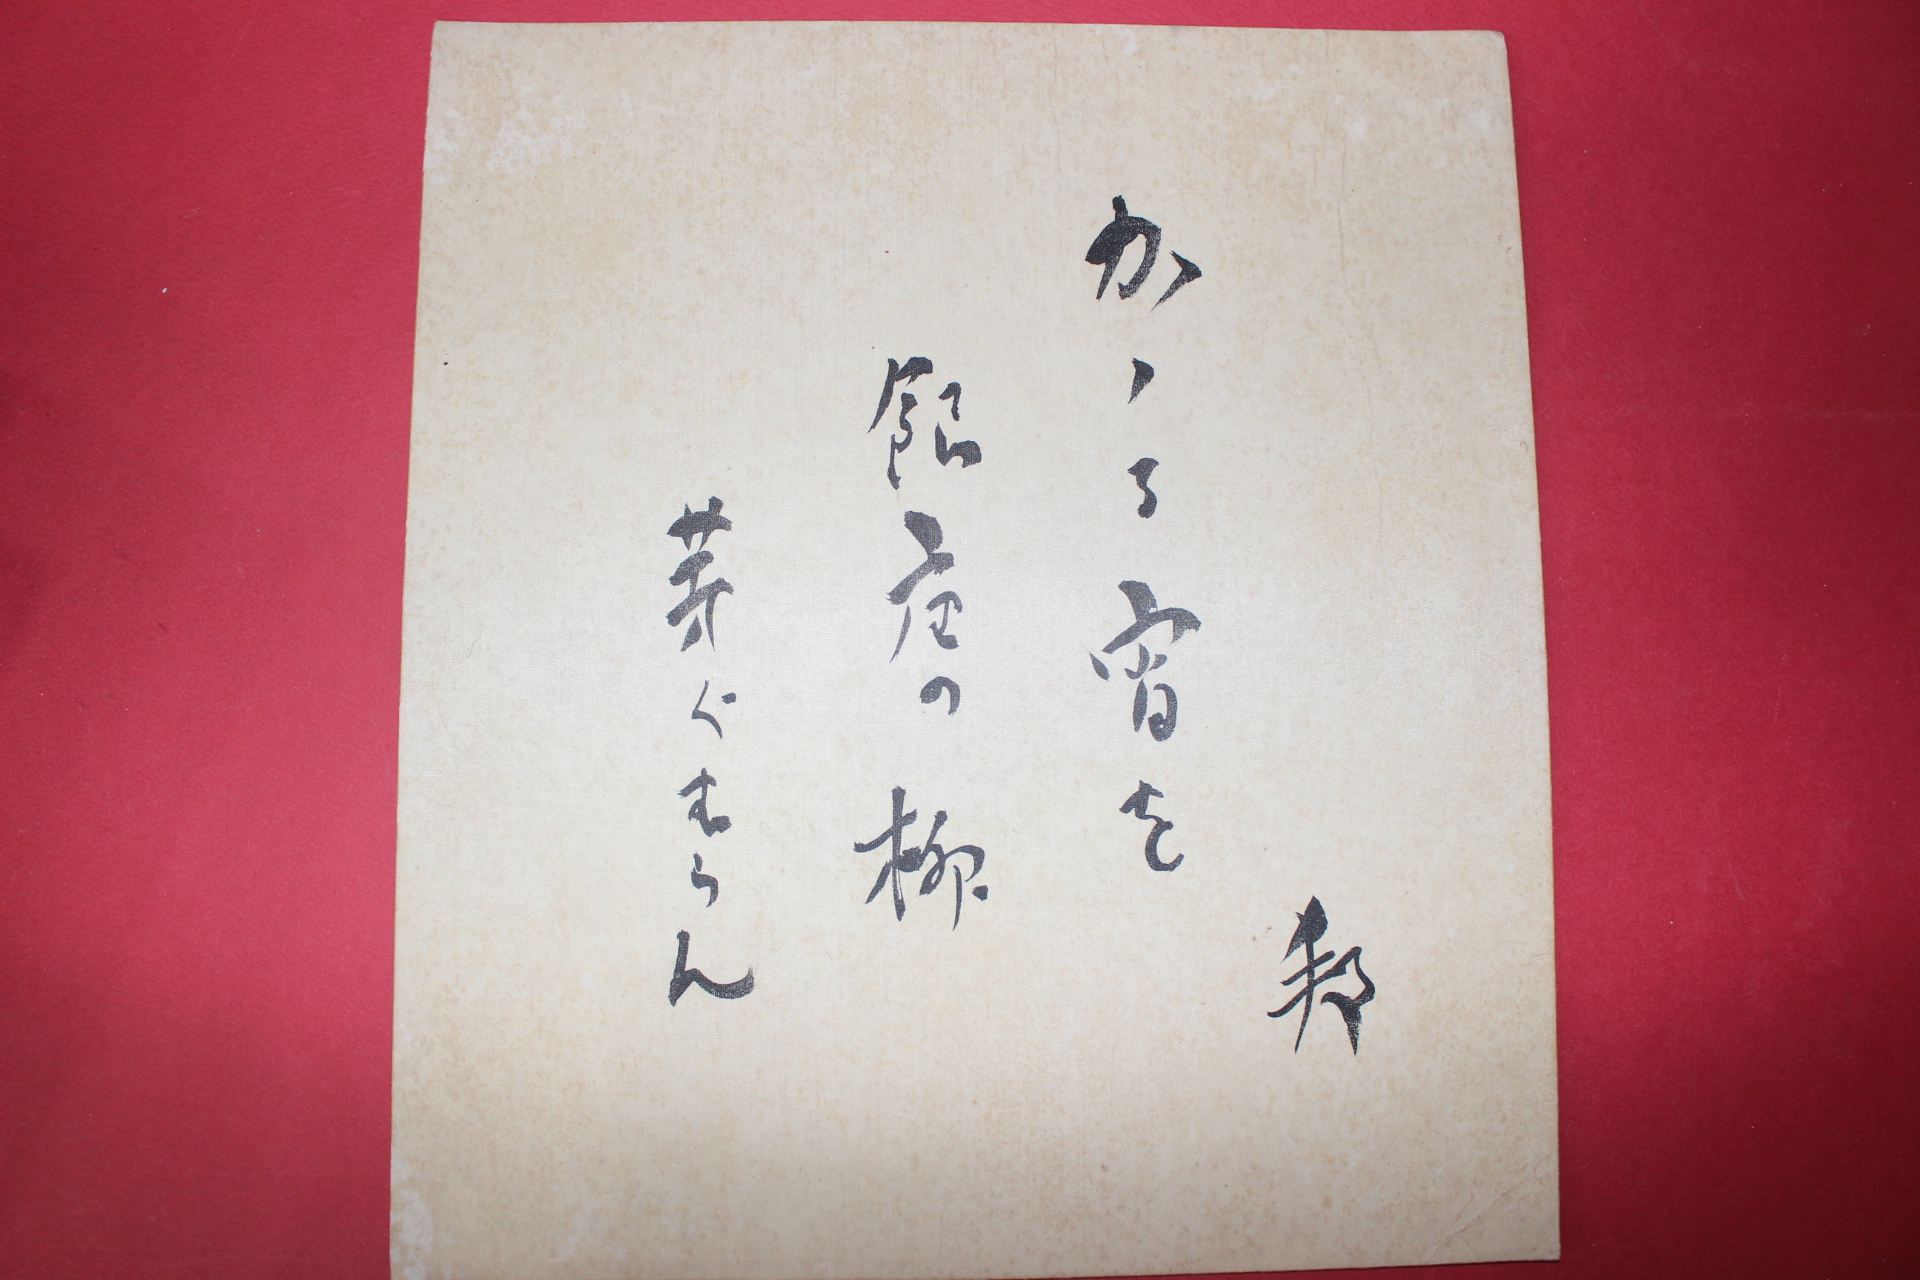 かゝる宵を
銀座の柳
芽ぐむらん
邦